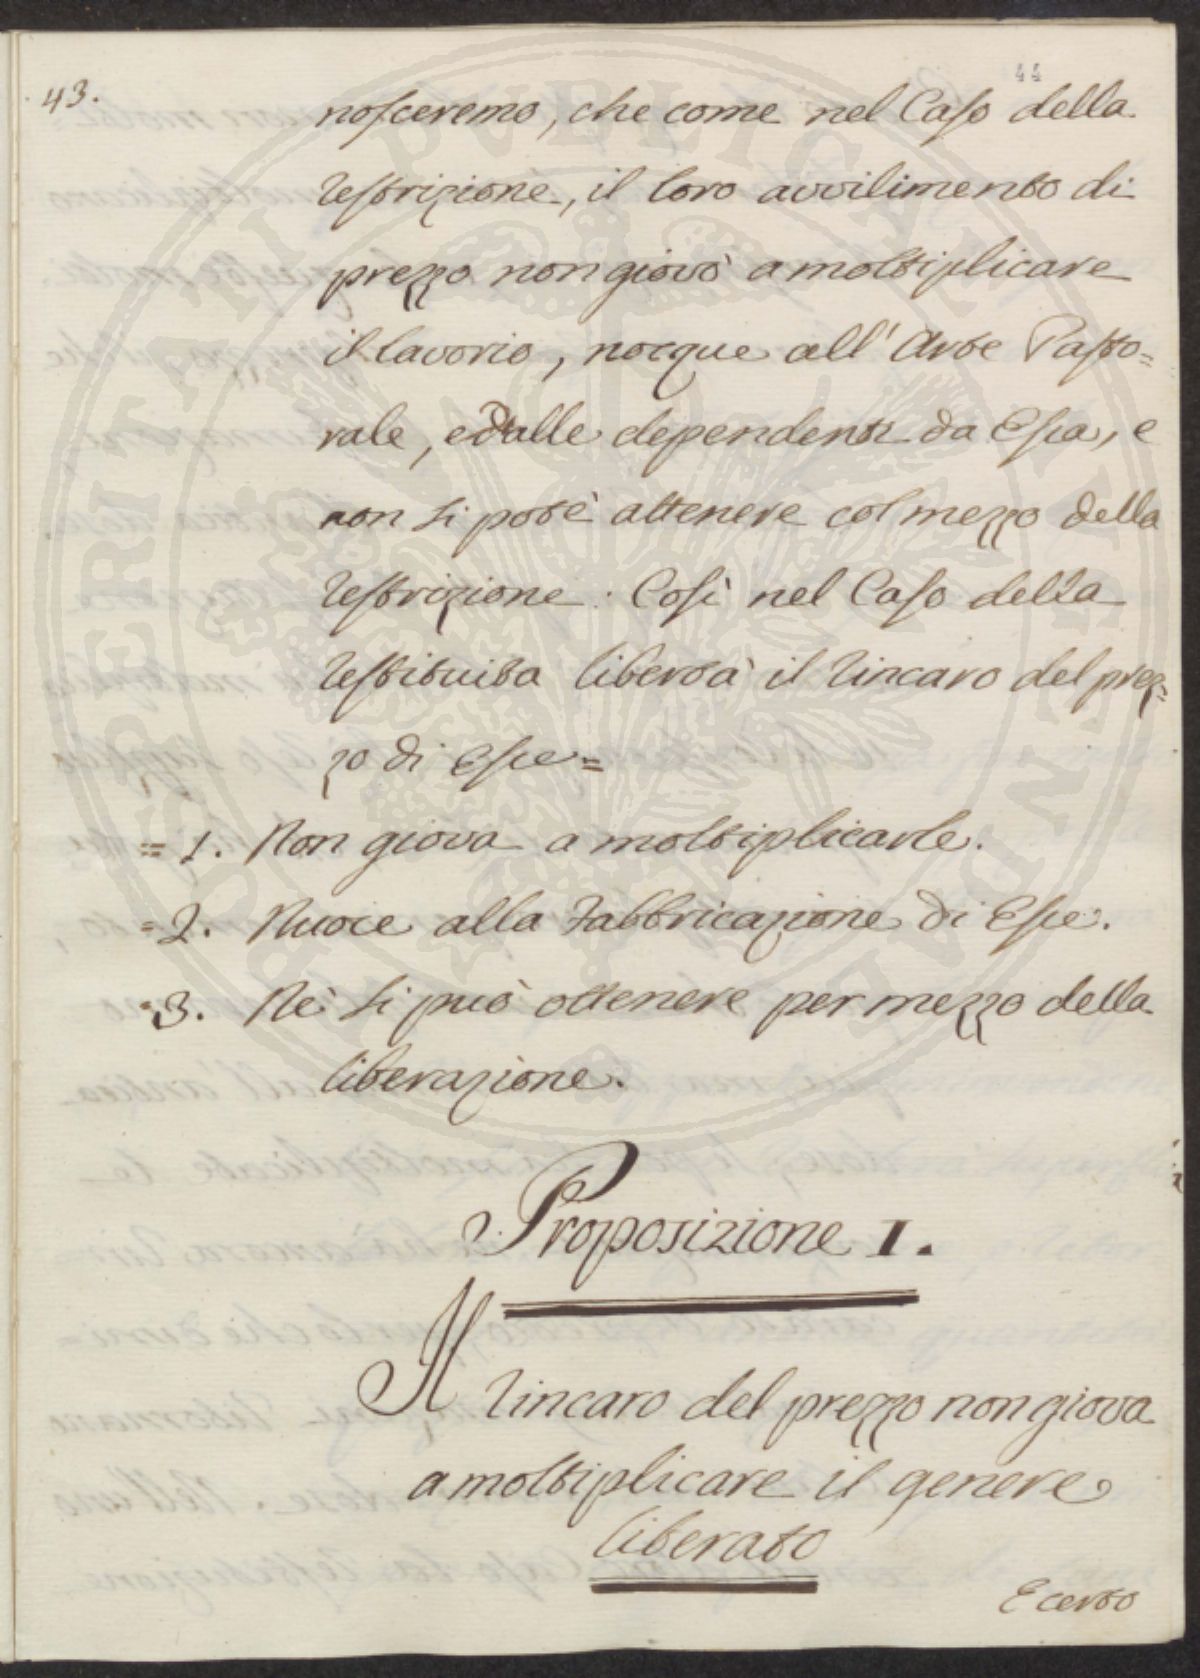 43.
44
nosceremo, che come nel Caso della
restrizione, il loro avvilimento di
prezzo non giovò a moltiplicare
il lavorio, nocque all' Arte Pasto=
rale, ed alle dependenti da Essa, e
non si potè ottenere col mezzo della
restrizione. Così nel Caso della
restituita libertà il rincaro del prez=
zo di Esse=
=1. Non giova a moltiplicarle.
=2. Nuoce alla Fabbricazione di Esse.
=3. Nè si può ottenere per mezzo della
liberazione.
Proposizione I.
Il rincaro del prezzo non giova
a moltiplicare il genere
liberato
E certo
PROSPERITATI PUBLICAE AUGENDAE